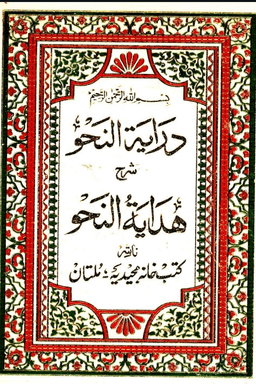 بسم الله الرحمن الرحيم
دراية النحو
شرح
هداية النحو
ناشر
کتب خانہ مجیدیہ ملتان